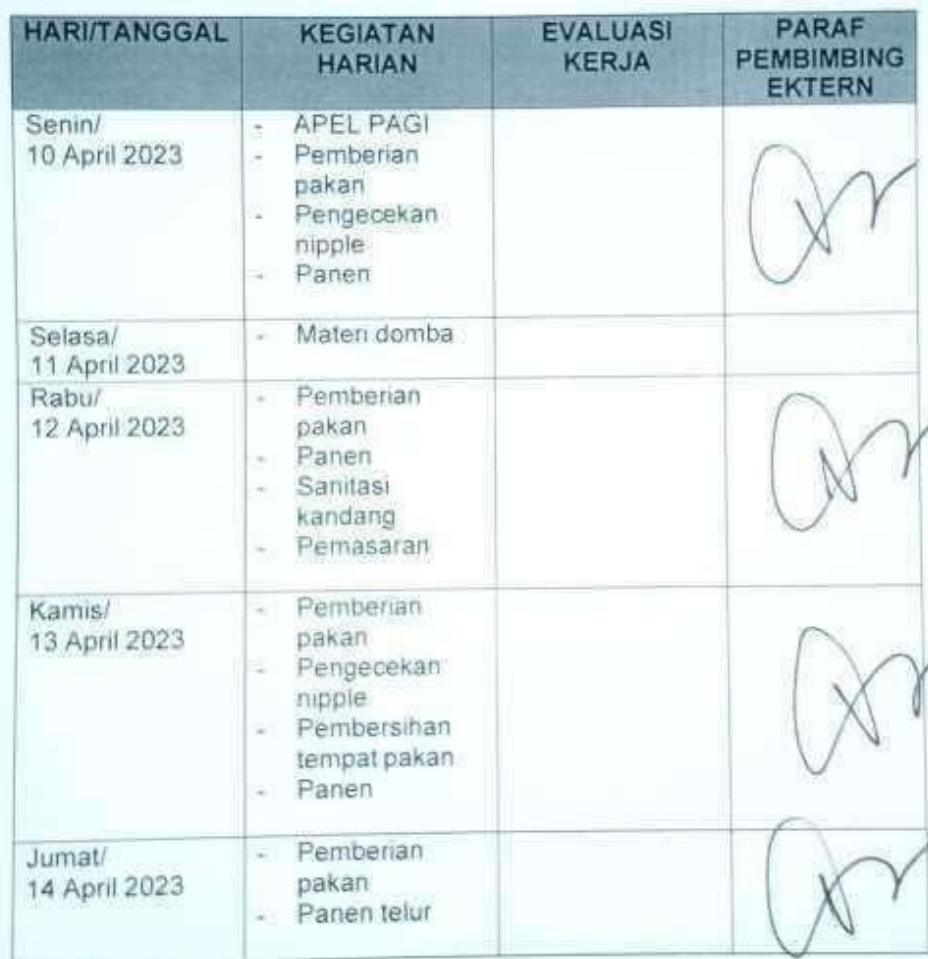 HARI/TANGGAL
KEGIATAN
HARIAN
EVALUASI
KERJA
PARAF
PEMBIMBING
EKTERN
Senin/
10 April 2023
- APEL PAGI
- Pemberian
pakan
- Pengecekan
nipple
- Panen
Selasa/
11 April 2023
- Materi domba
Rabu/
12 April 2023
- Pemberian
pakan
- Panen
- Sanitasi
kandang
- Pemasaran
Kamis/
13 April 2023
- Pemberian
pakan
- Pengecekan
nipple
- Pembersihan
tempat pakan
- Panen
Jumat/
14 April 2023
- Pemberian
pakan
- Panen telur